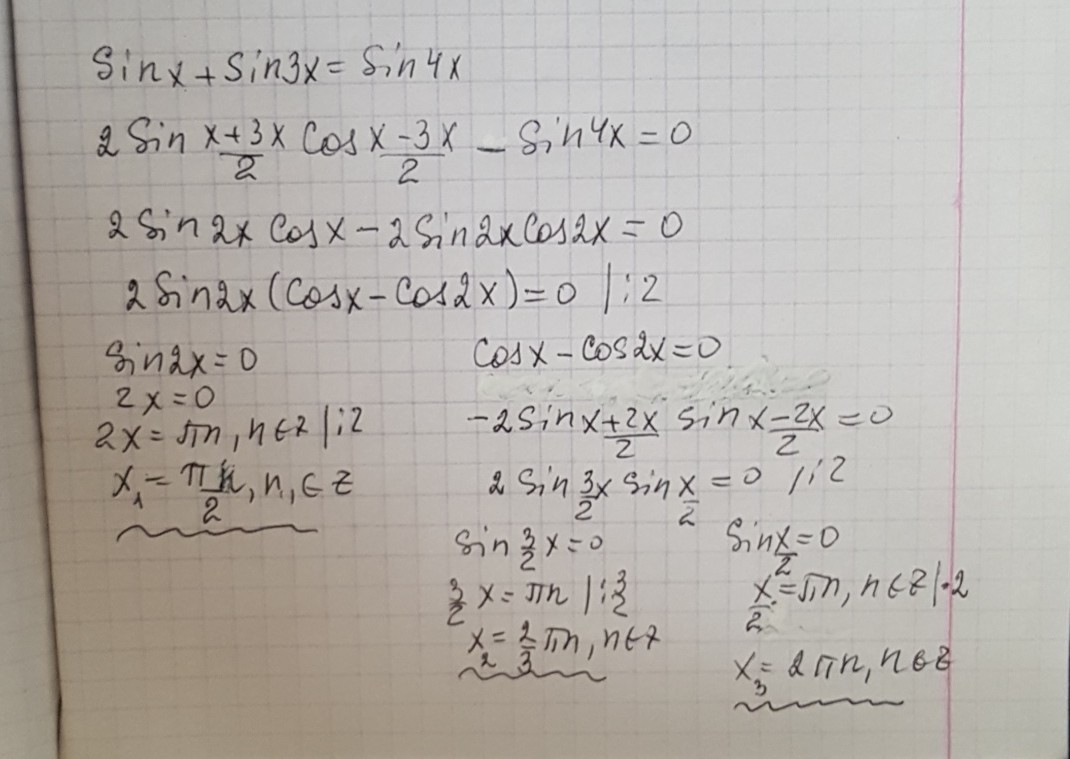 Sinx + Sin3x = Sin4x
2 Sin (x+3x)/2 Cos (x-3x)/2 - Sin4x = 0
2 Sin 2x Cosx - 2 Sin2x Cos2x = 0
2 Sin2x (Cosx - Cos2x) = 0 |:2
Sin2x = 0
2x = 0
2x = πn, n∈z |:2
x₁ = πn/2, n, ∈ Z
Cosx - Cos2x = 0
-2 Sin (x+2x)/2 Sin (x-2x)/2 = 0
2 Sin 3/2 x Sin x/2 = 0 |:2
Sin 3/2 x = 0
3/2 x = πn |:3/2
x₂ = 2/3 πn, n∈z
Sin x/2 = 0
x/2 = πn, n∈z |·2
x₃ = 2πn, n∈z